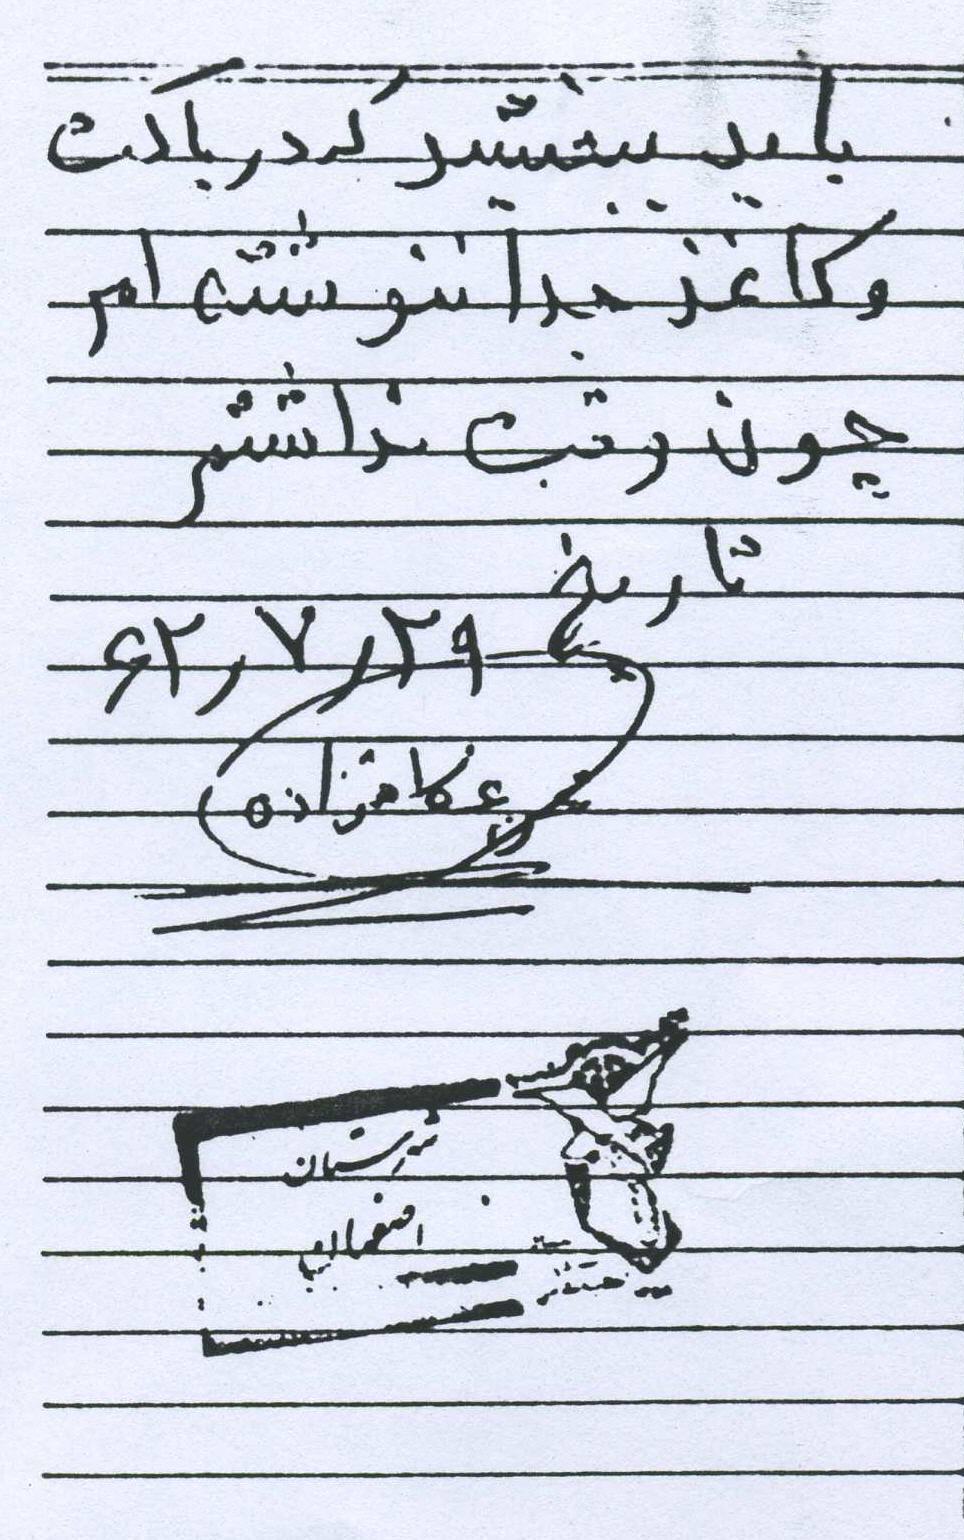 باید ببخشید که در پاکت
و کاغذ جدا ننوشته ام
چون وقت نداشتم
تاریخ
۶۲٫۷٫۲۹
شهرستان
اصفهان